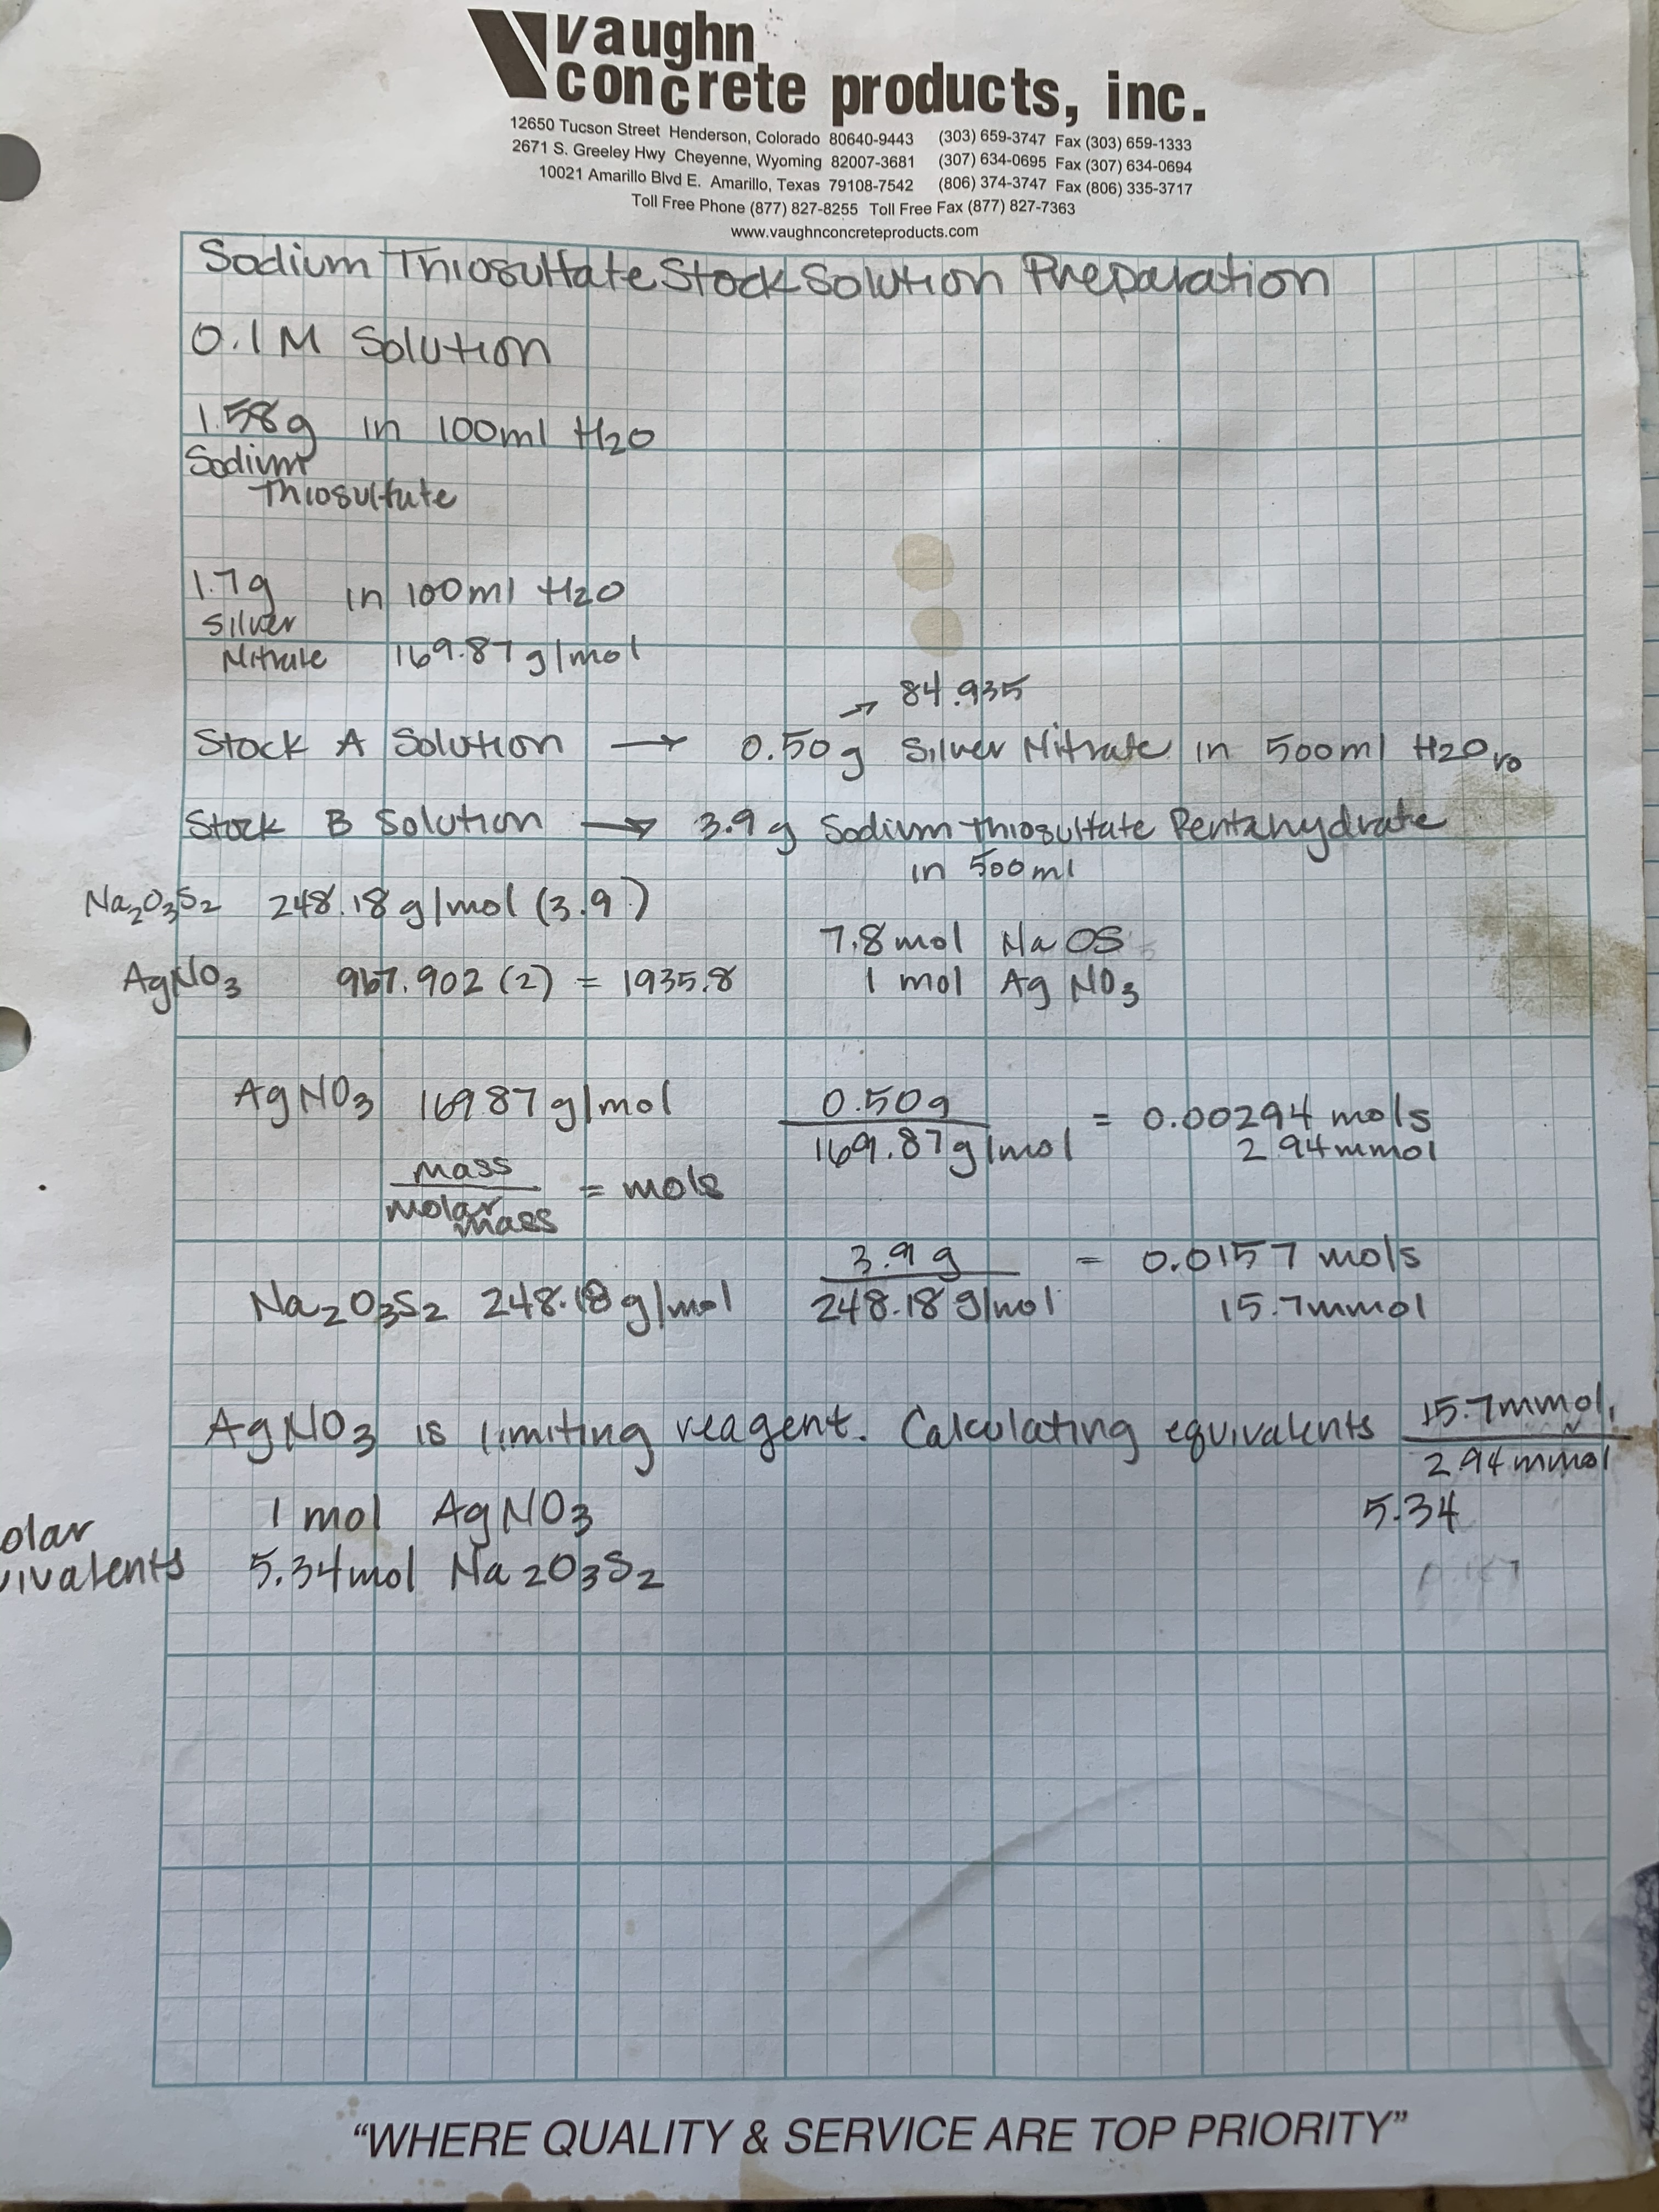 vaughn
concrete products, inc.
12650 Tucson Street Henderson, Colorado 80640-9443 (303) 659-3747 Fax (303) 659-1333
2671 S. Greeley Hwy Cheyenne, Wyoming 82007-3681 (307) 634-0695 Fax (307) 634-0694
10021 Amarillo Blvd E. Amarillo, Texas 79108-7542 (806) 374-3747 Fax (806) 335-3717
Toll Free Phone (877) 827-8255 Toll Free Fax (877) 827-7363
www.vaughnconcreteproducts.com
Sodium Thiosulfate Stock Solution Preparation
0.1M Solution
1.58g in 100ml H2O
Sodium
Thiosulfate
1.7g in 100ml H2O
Silver
Nitrate 169.87g/mol
→ 84.935
Stock A Solution → 0.50g Silver Nitrate in 500ml H2O ro
Stock B Solution → 3.9g Sodium Thiosulfate Pentahydrate
in 500ml
Na2O3S2 248.18g/mol (3.9)
7.8mol NaOS
AgNO3 967.902 (2) = 1935.8 1 mol AgNO3
AgNO3 169.87g/mol 0.50g = 0.00294 mols
169.87g/mol 2.94mmol
mass = mols
molar mass
3.9g = 0.0157 mols
Na2O3S2 248.18g/mol 248.18g/mol 15.7mmol
AgNO3 is limiting reagent. Calculating equivalents 15.7mmol
2.94mmol
olar 1 mol AgNO3 5.34
ivalents 5.34mol Na2O3S2
“WHERE QUALITY & SERVICE ARE TOP PRIORITY”